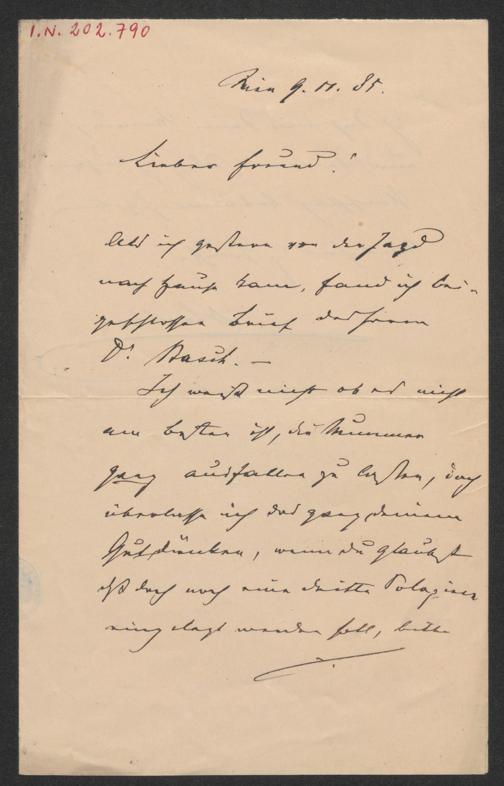 I.N. 202.790
Wien 9. 11. 85.
Lieber Freund!
Als ich gestern von der Jagd
nach Hause kam, fand ich bei-
geschlossen Brief des Herrn
Dr. Basch. —
Ich weiß nicht ob es nicht
am besten ist, die Nummer
ganz ausfallen zu lassen, doch
überlasse ich das ganz deinem
Gutdünken, wenn du glaubst
daß doch noch eine dritte
eingelegt werden soll, bitte